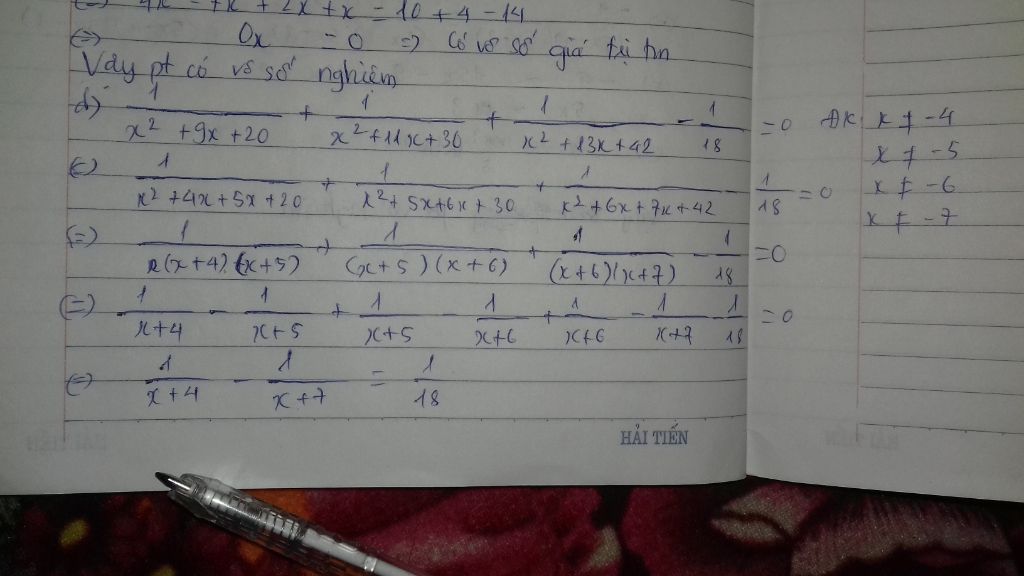 (=) 4x - 7x + 2x + x = 10 + 4 - 14
(=) 0x = 0 => Có vô số giá trị tm
Vậy pt có vô số nghiệm
d) 1/(x² + 9x + 20) + 1/(x² + 11x + 30) + 1/(x² + 13x + 42) - 1/18 = 0 ĐK x ≠ -4
x ≠ -5
(=) 1/(x² + 4x + 5x + 20) + 1/(x² + 5x + 6x + 30) + 1/(x² + 6x + 7x + 42) - 1/18 = 0 x ≠ -6
x ≠ -7
(=) 1/(x+4).(x+5) + 1/(x+5)(x+6) + 1/(x+6)(x+7) - 1/18 = 0
(=) 1/(x+4) - 1/(x+5) + 1/(x+5) - 1/(x+6) + 1/(x+6) - 1/(x+7) - 1/18 = 0
(=) 1/(x+4) - 1/(x+7) = 1/18
HẢI TIẾN